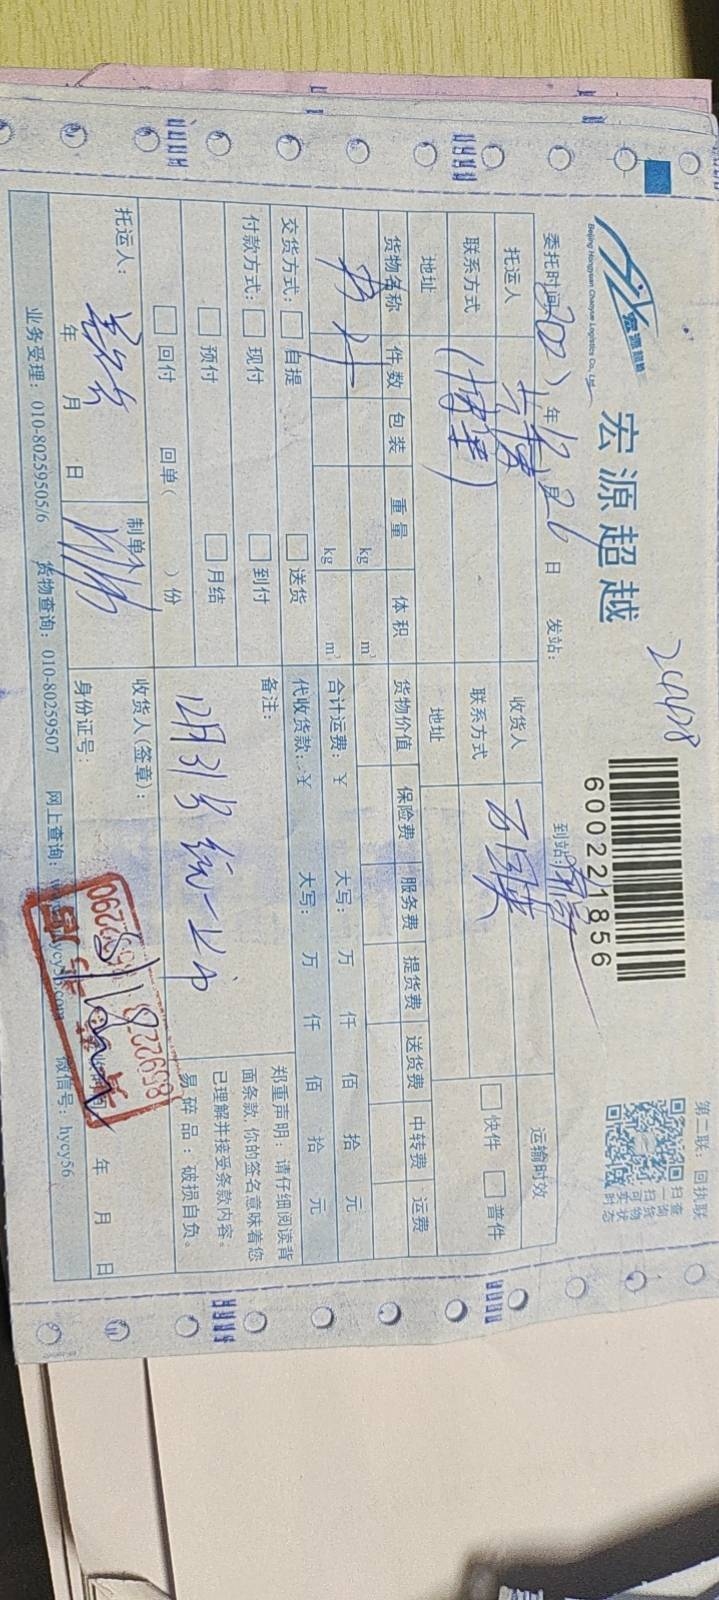 第二联：回执联
扫一扫可
查询货物状态
宏源超越
Beijing Hongyuan Chaoyue Logistics Co., Ltd.
宏源超越
600221856
委托时间 年12月26日
发站：
到站：
托运人
收货人
运输时效
联系方式
联系方式
快件
普件
地址
地址
货物名称 件数 包装 重量 体积 货物价值 保险费 服务费 提货费 送货费 中转费 运费
kg m³
kg m³
合计运费：¥ 大写： 万 仟 佰 拾 元
交货方式： 自提 送货
代收货款：¥ 大写： 万 仟 佰 拾 元
付款方式： 现付 到付
预付 月结
回付 回单（ ）份
备注：
12月31号统一上
郑重声明：请仔细阅读背
面条款，你的签名意味着您
已理解并接受条款内容。
易碎品：破损自负。
托运人：
年 月 日
制单人
收货人（签章）：
身份证号：
年 月 日
业务受理：010-80259505/6 货物查询：010-80259507 网上查询： 微信号：hycy56